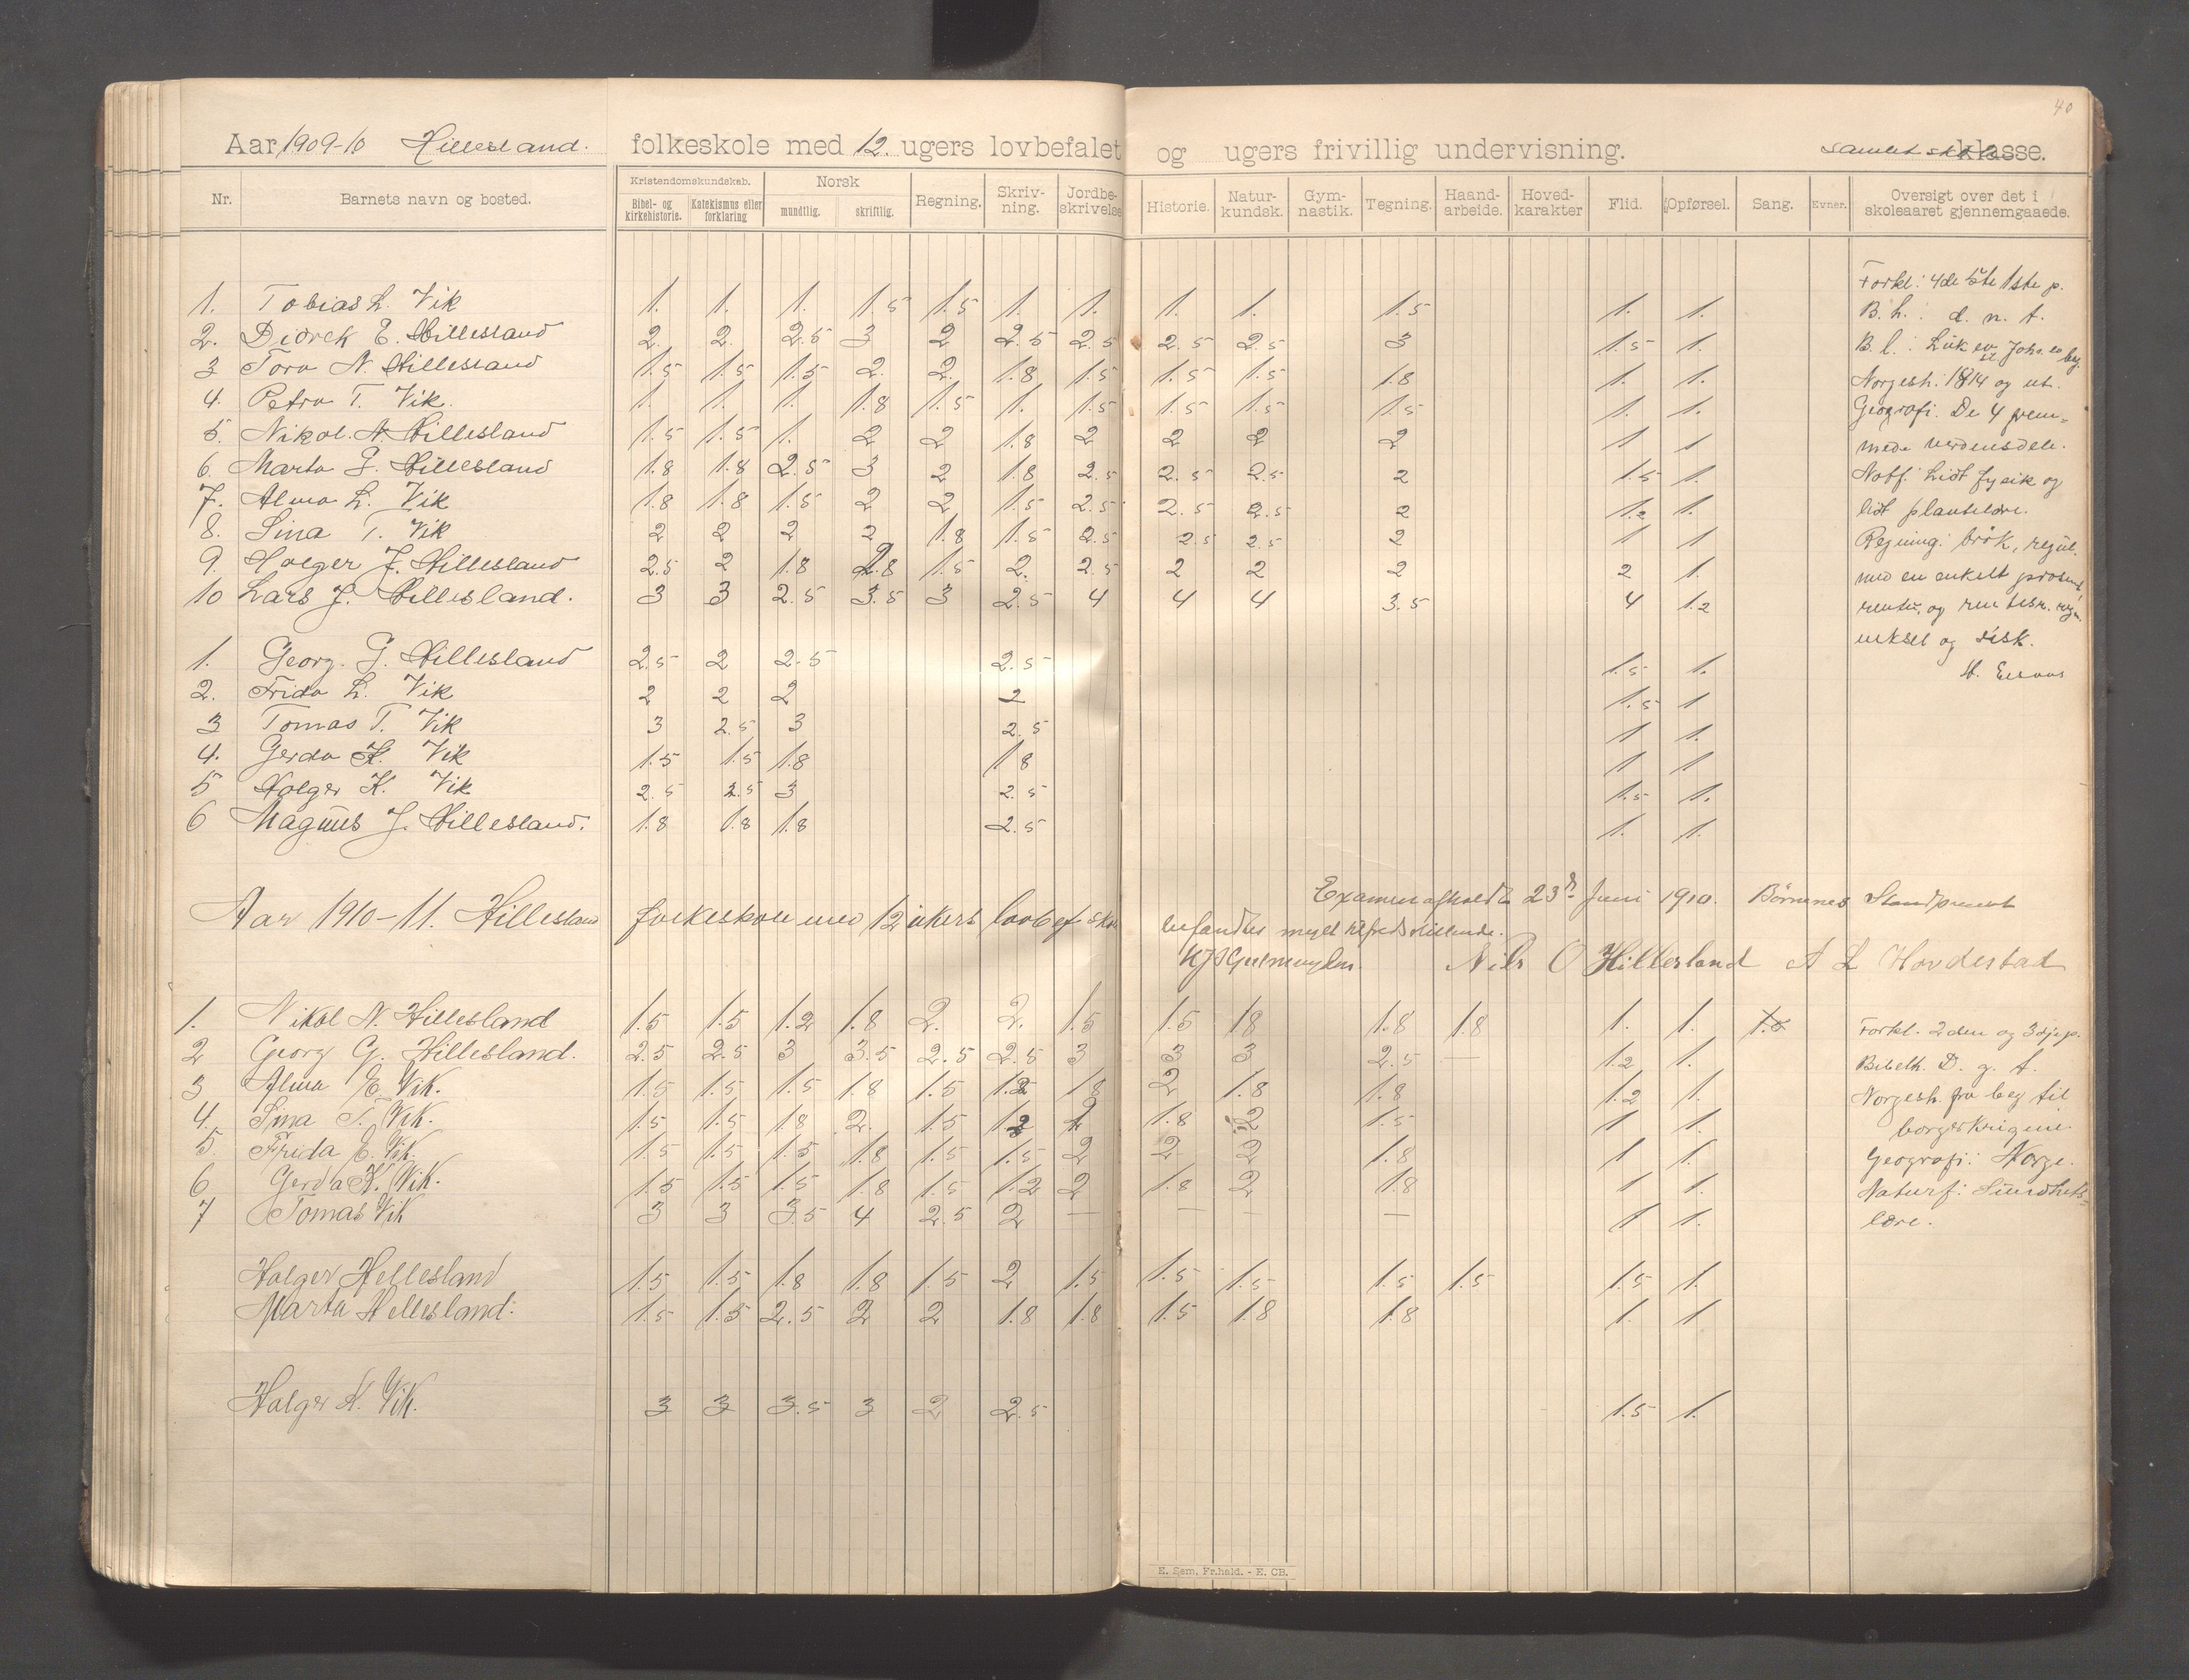 40
Aar 1909-10 Hillesland. folkeskole med 12 ugers lovbefalet og ugers frivillig undervisning. samlet klasse.
Nr. Barnets navn og bosted. Kristendomskundskab. Norsk Regning. Skriv-ning. Jordbe-skrivelse Historie. Natur-kundsk. Gym-nastik. Tegning. Haand-arbeide. Hoved-karakter Flid. Opførsel. Sang. Evner. Oversigt over det i skoleaaret gjennemgaaede.
Bibel- og kirkehistorie. Katekismus eller forklaring mundtlig. skriftlig.
Forkl: 4de 5te 1ste p.
1. Tobias L. Vik 1. 1. 1. 1.5 1.5 1. 1. 1. 1. 1.5 1. 1.
B. h.: d. n. t.
2. Didrek E. Hillesland 2. 2. 2.5 3 2 2.5 2.5 2.5 2.5 3 1.5 1.
B. l.: Luk ev Joh. ev beg.
3 Tora N. Hillesland 1.5 1.5 1.5 2. 2. 1.8 1.5 1.5 1.5 1.8 1. 1.
Norgesh. 1814 og ut.
4. Petra T. Vik. 1. 1. 1. 1.8 1.5 1. 1.5 1.5 1.5 1.5 1. 1.
Geografi. De 4 frem-
5. Nikol. N. Hillesland 1.5 1.5 1. 2 2 1.8 2 2 2 2 1 1
mede verdensdele.
6. Marta G. Hillesland 1.8 1.8 2.5 3 2 1.8 2.5 2.5 2.5 2 1.5 1.
Natf. Lidt fysik og
7. Alma L. Vik 1.8 1.8 1.5 2 2 1.5 2.5 2.5 2.5 2 1.2 1.
lidt plantelære.
8. Sina T. Vik 2 2 2 2 1.8 1.5 2.5 2.5 2.5 2 1 1
Regning: brøk, regul.
9. Holger J. Hillesland 2.5 2 1.8 2.8 1.5 2. 2.5 2 2 2 2 1.
med en enkelt
10 Lars J. Hillesland. 3 3 2.5 3.5 3 2.5 4 4 4 3.5 4 1.2
og
veksel og disk.
1. Georg. G. Hillesland 2.5 2 2.5 2.5 1.5 1.
2. Frida L. Vik 2 2 2 2 1.5 1
3 Tomas T. Vik 3 2.5 3 2.5 1 1.
4. Gerda K. Vik 1.5 1.5 1.8 1.8 1 1
5 Holger K. Vik 2.5 2.5 3 2.5 1.5 1.
6 Magnus J. Hillesland. 1.8 1.8 1.8 2.5 1. 1.
Examen afholdt 23d Juni 1910. Børnenes Standpunkt
Aar 1910-11. Hillesland folkeskole med 12 ukers lovbef
befandtes meget tilfredsstillende.
Nils O Hillesland A L Hovdestad
1. Nikol N. Hillesland 1.5 1.5 1.2 1.8 2. 2. 1.5 1.5 1.8 1.8 1.8 1. 1.
Forkl. 2den og 3dje p.
2 Georg G. Hillesland. 2.5 2.5 3 3.5 2.5 2.5 3 3 3 2.5 — 1.2 1.
Bibelh. D. g. t.
3 Alma E. Vik. 1.5 1.5 1.5 1.8 1.5 1.2 1.8 2 1.8 1.8 1.2 1.
Norgesh. fra beg til
4. Sina T. Vik. 1.5 1.5 1.8 2. 1.5 1.2 2 1.8 2 1.5 1 1.
borgerkrigene.
5. Frida E. Vik. 1.5 1.5 1.5 1.8 1.5 1.5 2 2 2 1.8 1 1.
Geografi: Norge.
6 Gerda K. Vik. 1.5 1.5 1.5 1.8 1.5 1.2 2 1.8 2 1.8 1 1.
Naturf: Sundhets-
7 Tomas Vik 3 3 3.5 4 2.5 2 — — — — 1 1.
lære.
Holger Hellesland 1.5 1.5 1.8 1.8 1.5 2 1.5 1.5 1.5 1.5 1.5 1.5 1.
Marta Hellesland. 1.5 1.5 2.5 2 2 1.8 1.8 1.5 1.8 1.8 1. 1
Holger K. Vik. 3 3 3.5 3 2 2.5 1.5 1.
E. Sem. Fr.hald. - E. CB.